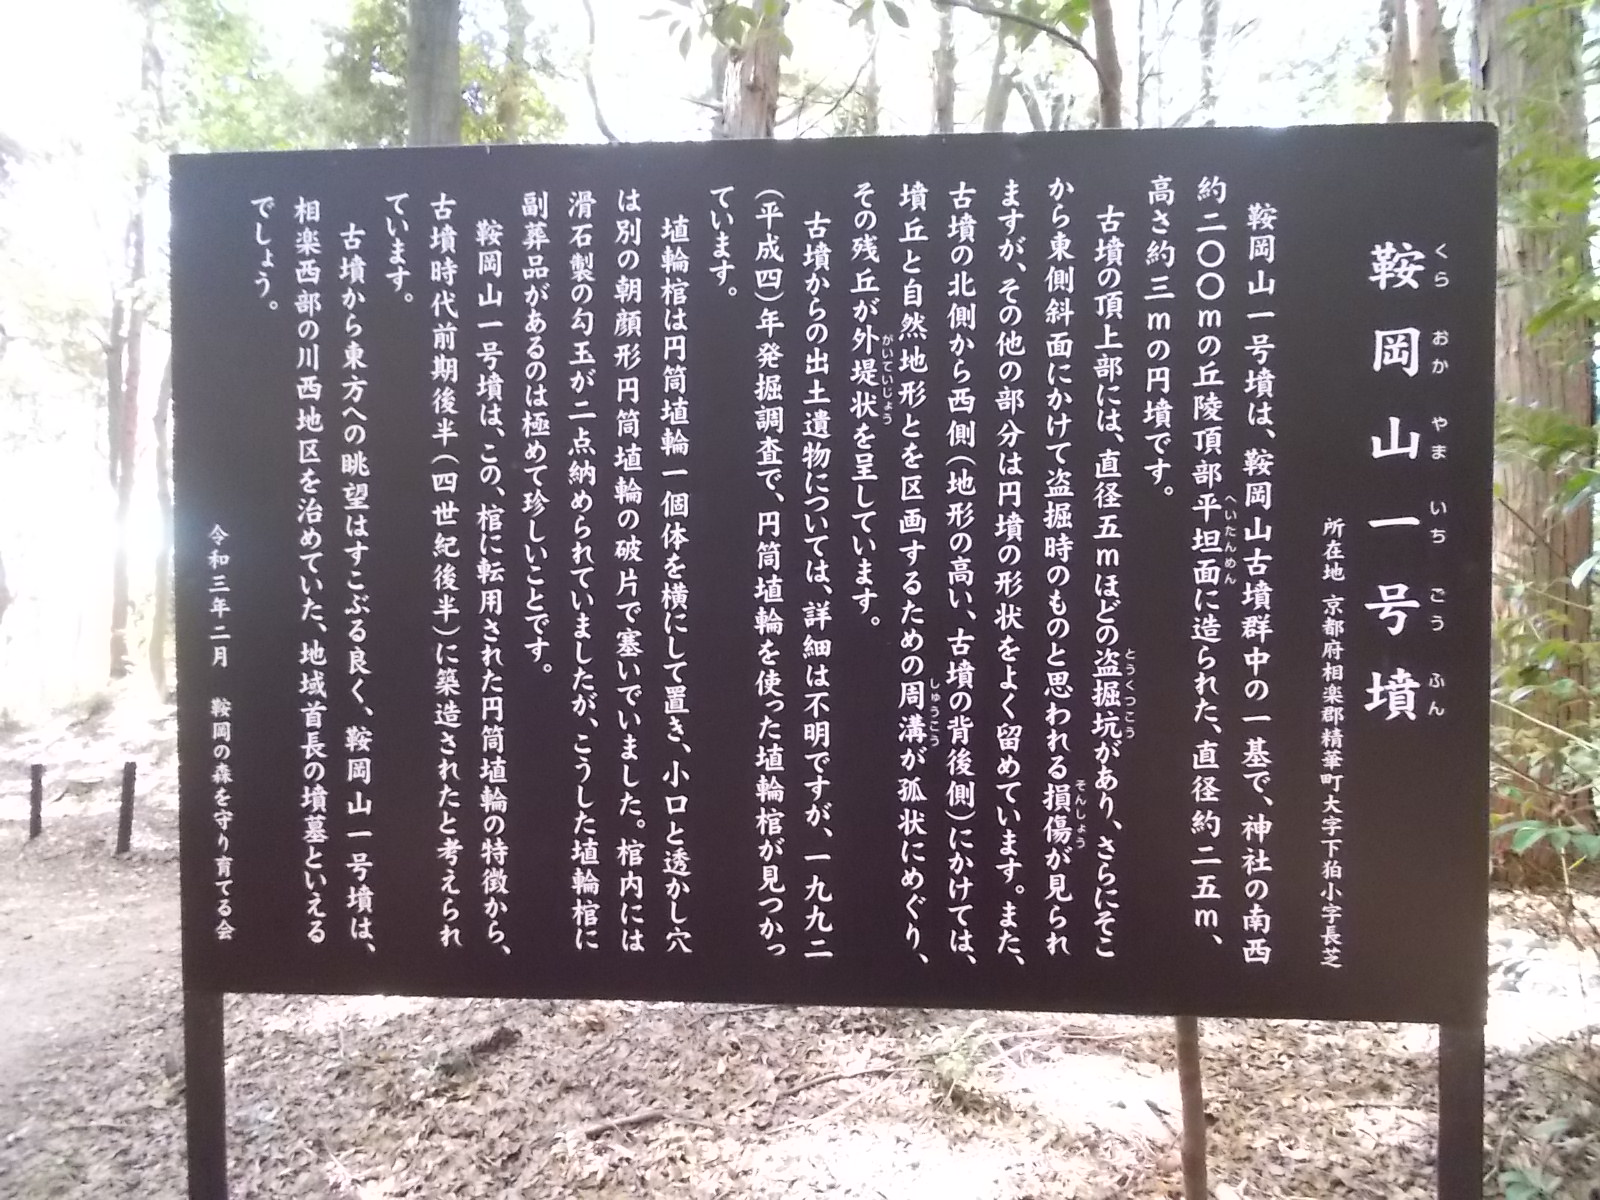 鞍岡山一号墳
くらおかやまいちごうふん
所在地 京都府相楽郡精華町大字下狛小字長芝
鞍岡山一号墳は、鞍岡山古墳群中の一基で、神社の南西
約二〇〇ｍの丘陵頂部平坦面に造られた、直径約二五ｍ、
へいたんめん
高さ約三ｍの円墳です。
古墳の頂上部には、直径五ｍほどの盗掘坑があり、さらにそこ
とうくつこう
から東側斜面にかけて盗掘時のものと思われる損傷が見られ
そんしょう
ますが、その他の部分は円墳の形状をよく留めています。また、
古墳の北側から西側（地形の高い、古墳の背後側）にかけては、
墳丘と自然地形とを区画するための周溝が孤状にめぐり、
しゅうこう
その残丘が外堤状を呈しています。
がいていじょう
古墳からの出土遺物については、詳細は不明ですが、一九九二
（平成四）年発掘調査で、円筒埴輪を使った埴輪棺が見つかっ
ています。
埴輪棺は円筒埴輪一個体を横にして置き、小口と透かし穴
は別の朝顔形円筒埴輪の破片で塞いでいました。棺内には
滑石製の勾玉が二点納められていましたが、こうした埴輪棺に
副葬品があるのは極めて珍しいことです。
鞍岡山一号墳は、この、棺に転用された円筒埴輪の特徴から、
古墳時代前期後半（四世紀後半）に築造されたと考えられ
ています。
古墳から東方への眺望はすこぶる良く、鞍岡山一号墳は、
相楽西部の川西地区を治めていた、地域首長の墳墓といえる
でしょう。
令和三年二月 鞍岡の森を守り育てる会